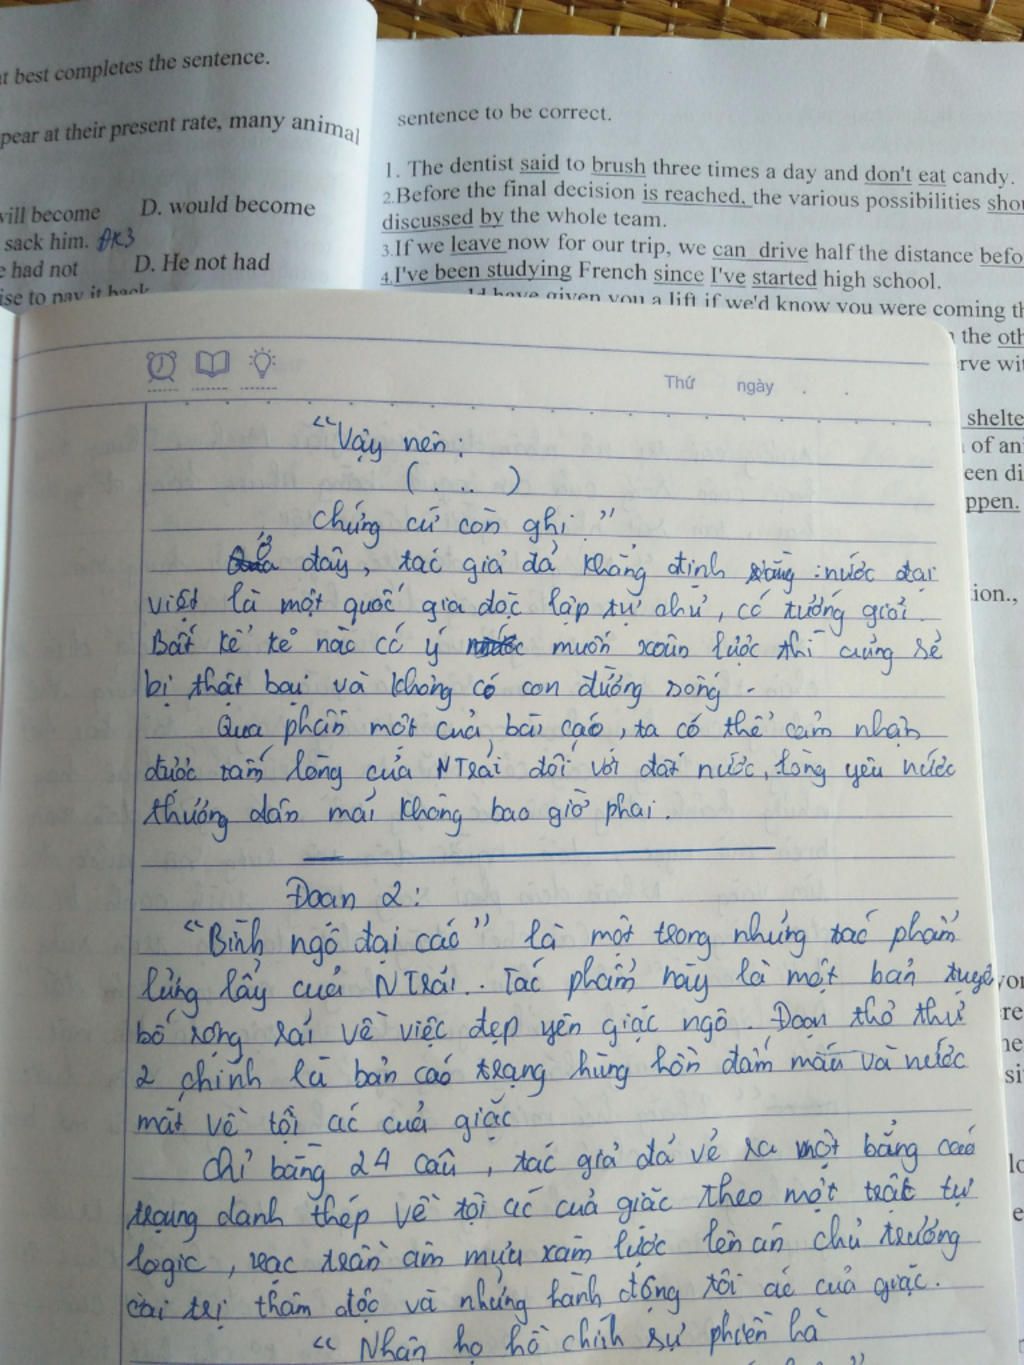 t best completes the sentence.
pear at their present rate, many animal
vill become D. would become
sack him. ĐK3
e had not D. He not had
ise to pay it back
sentence to be correct.
1. The dentist said to brush three times a day and don't eat candy.
2.Before the final decision is reached, the various possibilities shou
discussed by the whole team.
3.If we leave now for our trip, we can drive half the distance befo
4.I've been studying French since I've started high school.
ld have given you a lift if we'd know you were coming th
the oth
rve wit
shelte
of an
een di
ppen.
ion.,
Thứ ngày
“Vậy nên:
(...)
chứng cứ còn ghi”
Ở đây, tác giả đã khẳng định rằng : nước đại
việt là một quốc gia độc lập tự chủ, có tướng giỏi.
Bất kể kẻ nào có ý muốn xâm lược thì cũng sẽ
bị thất bại và không có con đường sống.
Qua phần một của bài cáo, ta có thể cảm nhận
được tấm lòng của NTrãi đối với đất nước, lòng yêu nước
thương dân mãi không bao giờ phai.
Đoạn 2:
“Bình ngô đại cáo” là một trong những tác phẩm
lừng lẫy của NTrãi.. Tác phẩm này là một bản tuyê
bố rộng rãi về việc dẹp yên giặc ngô. Đoạn thơ thứ
2 chính là bản cáo trạng hùng hồn đẫm máu và nước
mắt về tội ác của giặc
Chỉ bằng 24 câu, tác giả đã vẽ ra một bảng cáo
trạng danh thép về tội ác của giặc theo một trật tự
logic, vạc trần âm mưu xâm lược lên án chủ trương
cai trị thâm độc và những hành động tội ác của giặc.
“ Nhân họ hồ chính sự phiền hà